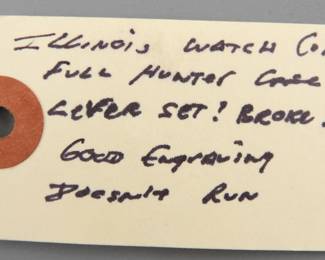 Illinois Watch Co.
Full Hunter Case
Lever Set! Broke
Good Engraving
Doesnit Run